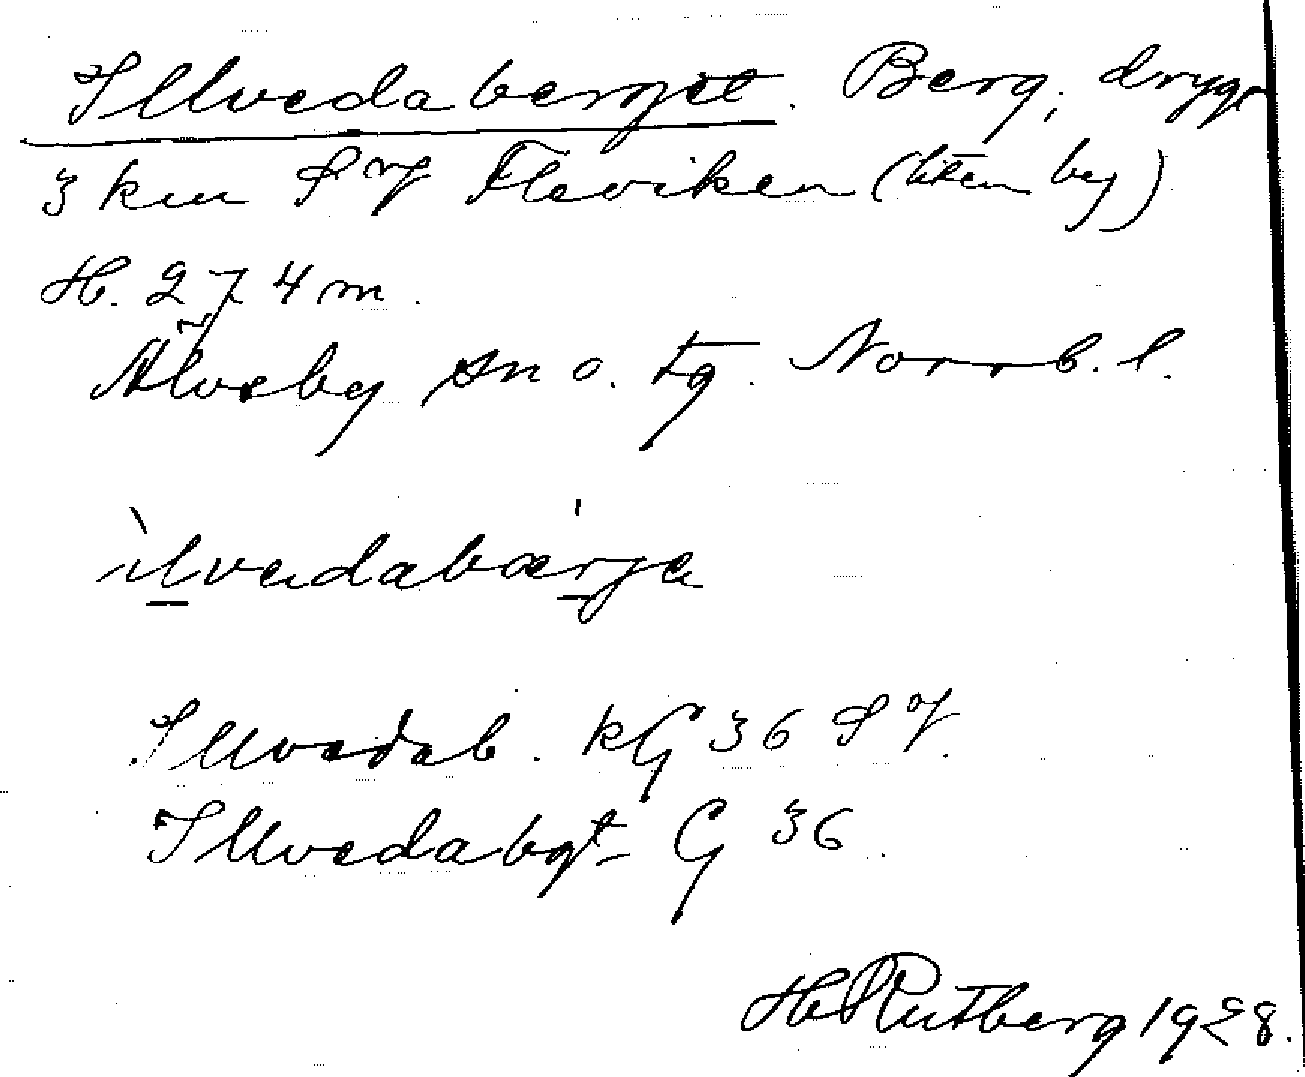 Illvedaberget. Berg, drygt
3 km SV Fleviken (liten by)
H. 274 m.
Älvsby sn o. tg. Norrb. l.
ìlvedabærja
Illvedab. kG 36 SV.
Illvedabgt- G 36.
H Rutberg 1928.